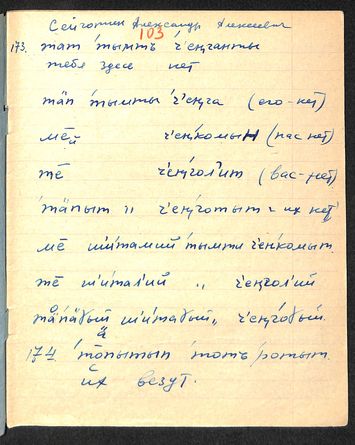 Сейготкин Александр Алексеевич
103
173. тат тымтъ чеңганты
тебя здесь нет
тӓп тымты чеңга (его - нет)
мē чеңкомын (нас нет)
тē чеңгол'ит (вас - нет)
тӓпыт " чеңготыт - их нет
мē шитамий тымти ченкомыт.
тē шитал'ий " чеңгол'ий
шитаɣый " чеңгоɣый.
174 тōпытып тотъротыт.
их везут.